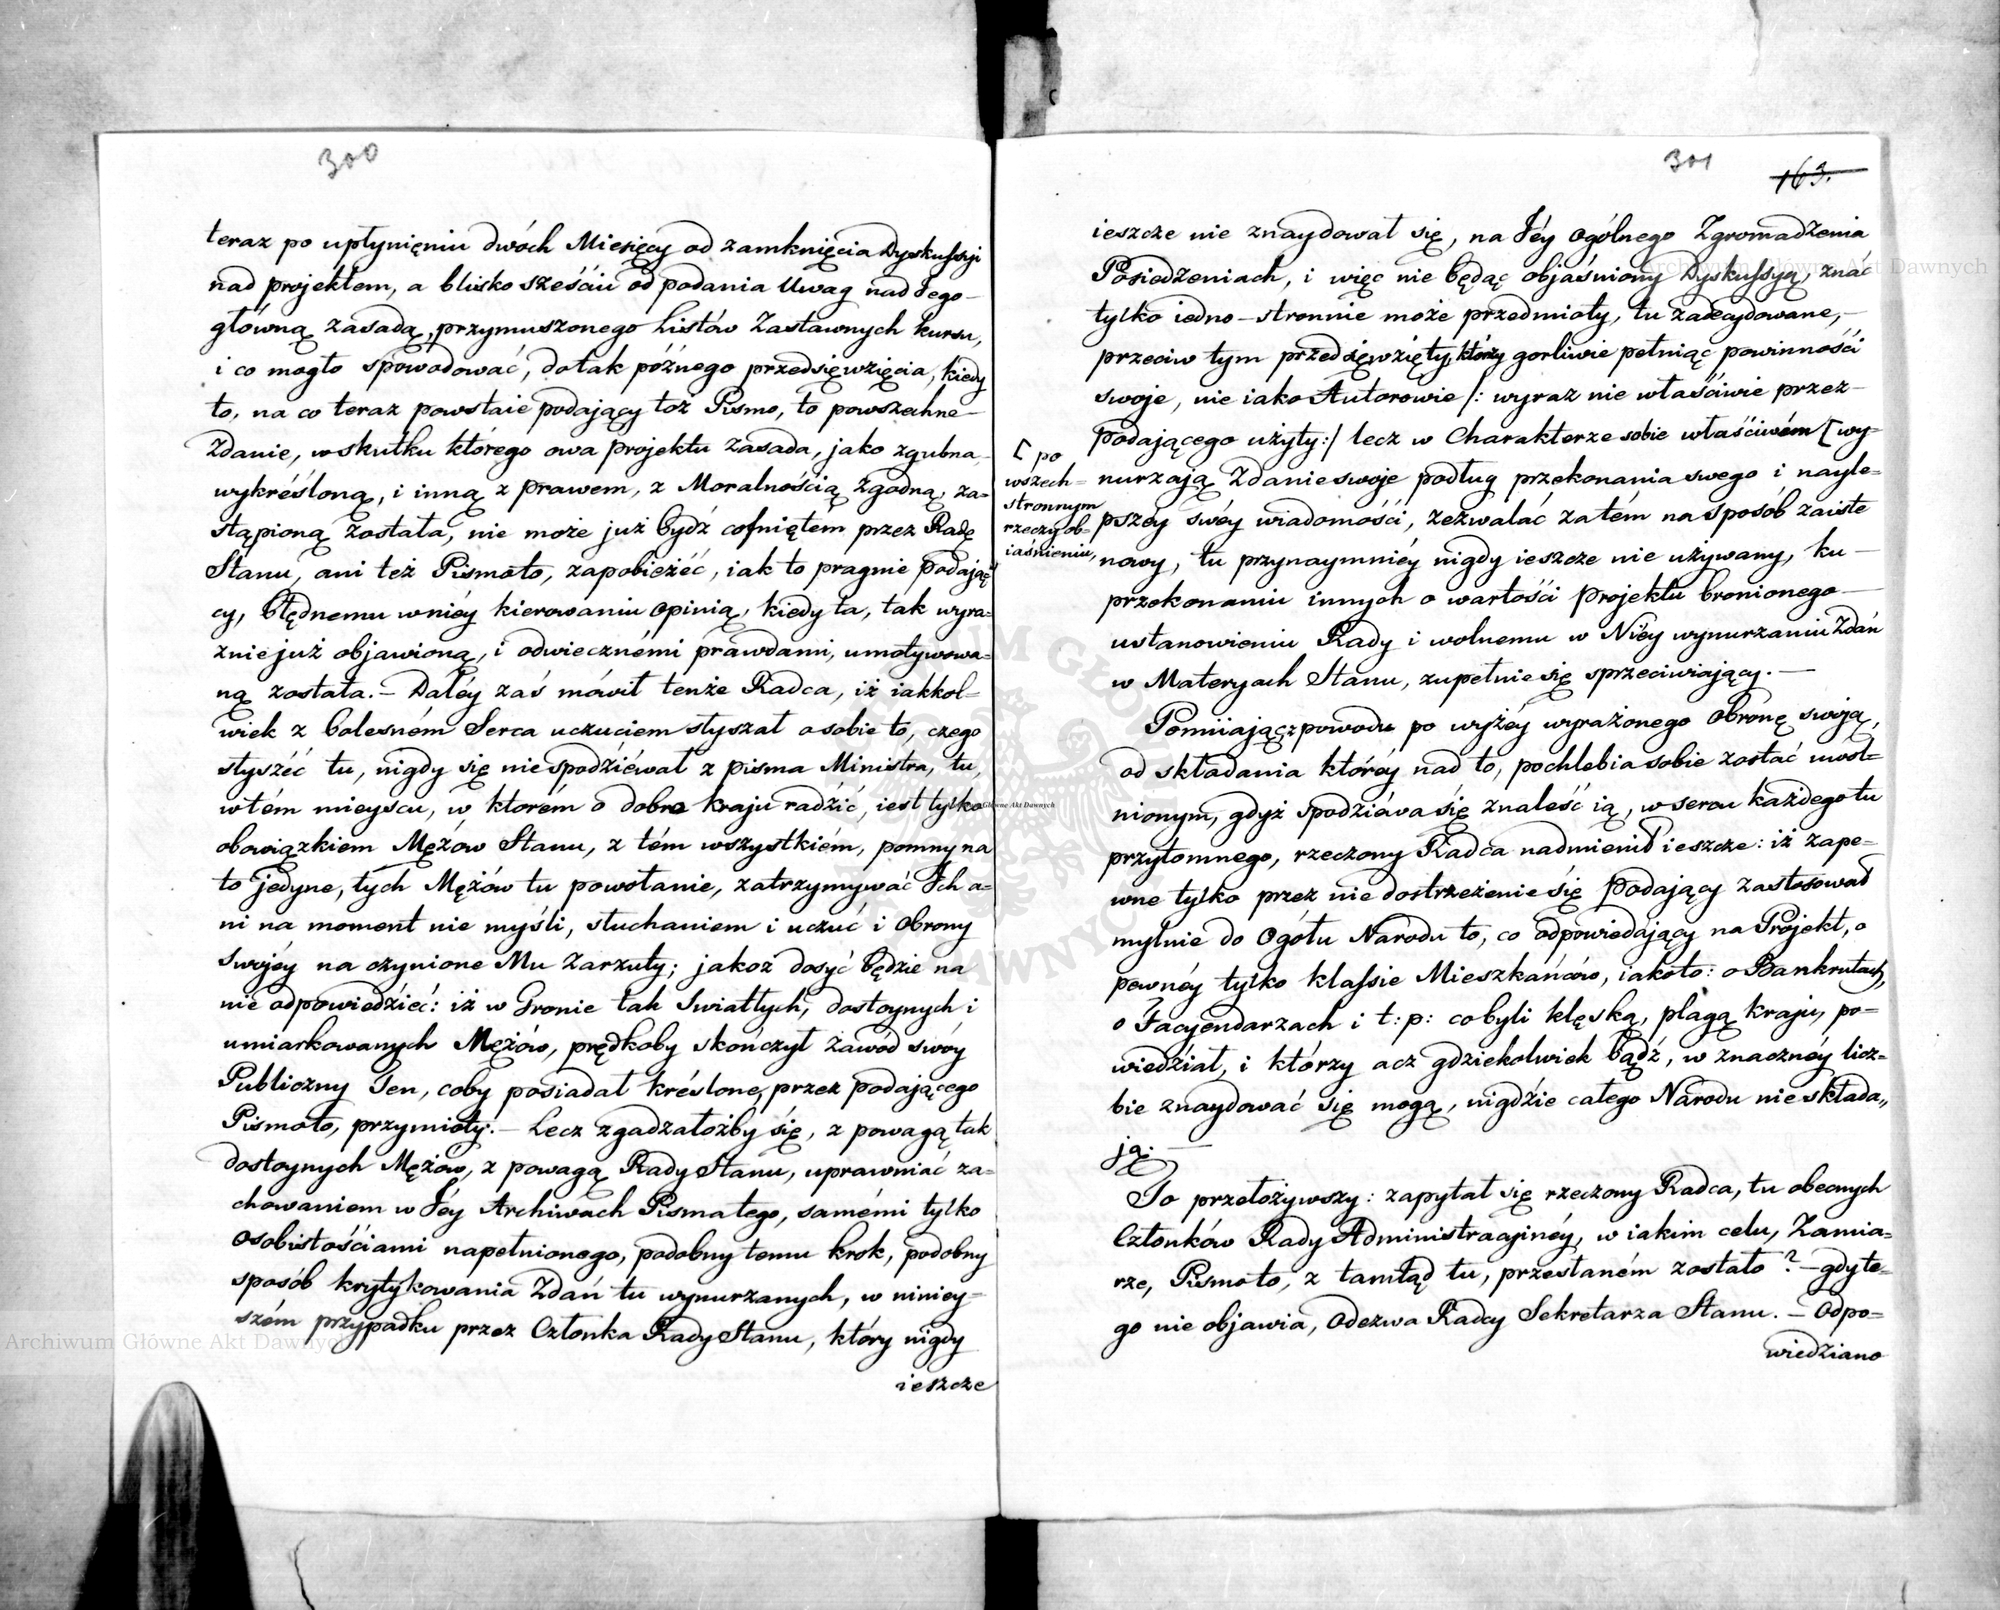 300
teraz po upłynięniu dwóch Miesięcy od zamknięcia Dyskussyi
nad projektem, a blisko sześciu od podania Uwag nad Jego
główną zasadą, przymuszonego Listów Zastawnych kursu,
i co mogło spowodować, do tak późnego przedsięwzięcia, kiedy
to, na co teraz powstaie podający toż Pismo, to powszechne
Zdanie, w skutku którego owa projektu zasada, jako zgubna,
wykréśloną, i inną z prawem, z Moralnością zgodną, za=
stąpioną została, nie może już bydź cofniętem przez Radę
Stanu, ani też Pismoto, zapobieżéć, iak to pragnie podają=
cy, błędnemu w niéy kierowaniu opinią, kiedy ta, tak wyra=
znie już objawioną, i odwiecznémi prawdami, umotywowa=
ną została. – Daléy zaś mówił tenże Radca, iż iakkol=
wiek z bolesném Serca uczuciem słyszał o sobie to, czego
słyszéć tu, nigdy się nie spodziéwał z pisma Ministra, tu,
w tém mieyscu, w ktorém o dobre kraju radzić, iest tylko
obowiązkiem Mężów Stanu, z tém wszystkiém, pomny na
to jedyne, tych Mężów tu powołanie, zatrzymywać Ich a=
ni na moment nie myśli, słuchaniem i uczuć i obrony
Swojéy na czynione Mu Zarzuty; jakoż dosyć będzie na
nie odpowiedziéć: iż w Gronie tak Swiatłych, dostoynych i
umiarkowanych Mężów, prędkoby skończył zawód swóy
Publiczny Ten, coby posiadał kréślone, przez podającego
Pismoto, przymioty. – Lecz zgadzałożby się, z powagą tak
dostoynych Mężów, z powagą Rady Stanu, uprawniać za=
chowaniem w Jéy Archiwach Pismatego, samémi tylko
osobistościami napełnionego, podobny temu krok, podobny
sposób krytykowania Zdań tu wynurzanych, w niniey=
szém przypadku przez Członka Rady Stanu, który nigdy
ieszcze
301
163.
ieszcze nie znaydował się, na Jéy ogólnego Zgromadzenia
Posiedzeniach, i więc nie będąc objaśniony Dyskussyą, znać
tylko iedno-stronnie może przedmioty, tu zadecydowane,
przeciw tym przedsięwzięty, którzy gorliwie pełniąc powinności
swoje, nie iako Autorowie /: wyraz nie właściwie przez
Podającego użyty :/ lecz w Charakterze sobie właściwém [ wy=
[ po
wszech=
stronnym
rzeczy ob=
iaśnieniu,
nurzają Zdanie swoje podług przekonania swego i nayle=
pszéy swéy wiadomości, zezwalać zatém na sposób zaiste
nowy, tu przynaymniéy nigdy ieszcze nie używany, ku
przekonaniu innych o wartości projektu bronionego
ustanowieniu Rady i wolnemu w Niéy wynurzaniu Zdań
w Materyach Stanu, zupełnie się sprzeciwiający. –
Pomiiając z powodu po wyżéy wyrażonego obronę swoją,
od składania któréy nad to, pochlebia sobie zostać uwol=
nionym, gdyż spodziéwa się znaleść ią, w sercu każdego tu
przytomnego, rzeczony Radca nadmienił ieszcze: iż zape=
wne tylko przez nie dostrzeżenie się Podający zastosował
mylnie do Ogółu Narodu to, co odpowiedający na Projekt, o
pewnéy tylko klassie Mieszkańców, iakoto: o Bankrutach,
o Facyendarzach i t: p: co byli klęską, plagą kraju, po=
wiedział, i którzy acz gdziekolwiek bądź, w znacznéy licz=
bie znaydować się mogą, nigdzie całego Narodu nie składa„
ją. –
To przełożywszy: zapytał się rzeczony Radca, tu obecnych
Członków Rady Administracyinéy, w iakim celu, Zamia=
rze, Pismoto, z tamtąd tu, przesłaném zostało? – gdy te=
go nie objawia, Odezwa Radcy Sekretarza Stanu. – Odpo=
wiedziano
Archiwum Główne Akt Dawnych